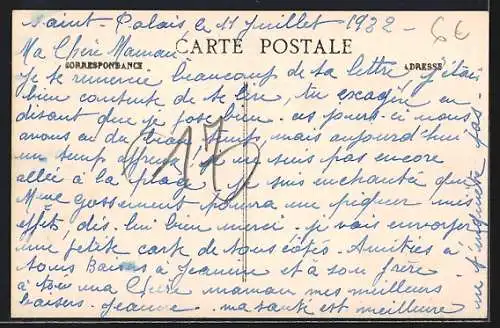 Saint-Palais, le 11 juillet 1932 -
6€
Ma Chère Maman
CARTE POSTALE
CORRESPONDANCE
ADRESSE
Je te remercie beaucoup de ta lettre, j'étais
bien contente de te lire, tu exagère en
disant que je pose bien. ces jours-ci nous
avons eu du beau temps, mais aujourd'hui
un temps affreux, je ne suis pas encore
allée à la plage, je suis enchantée que
Mme pourra me piquer mes
effets, dis-lui bien merci. je vais envoyer
une petite carte de tous côtés. Amitiés à
tous Baisers à Jeanne et à son frère
à toi ma Chère maman mes meilleurs
baisers. Jeanne. ma santé est meilleure
ne t'inquiète pas -
17